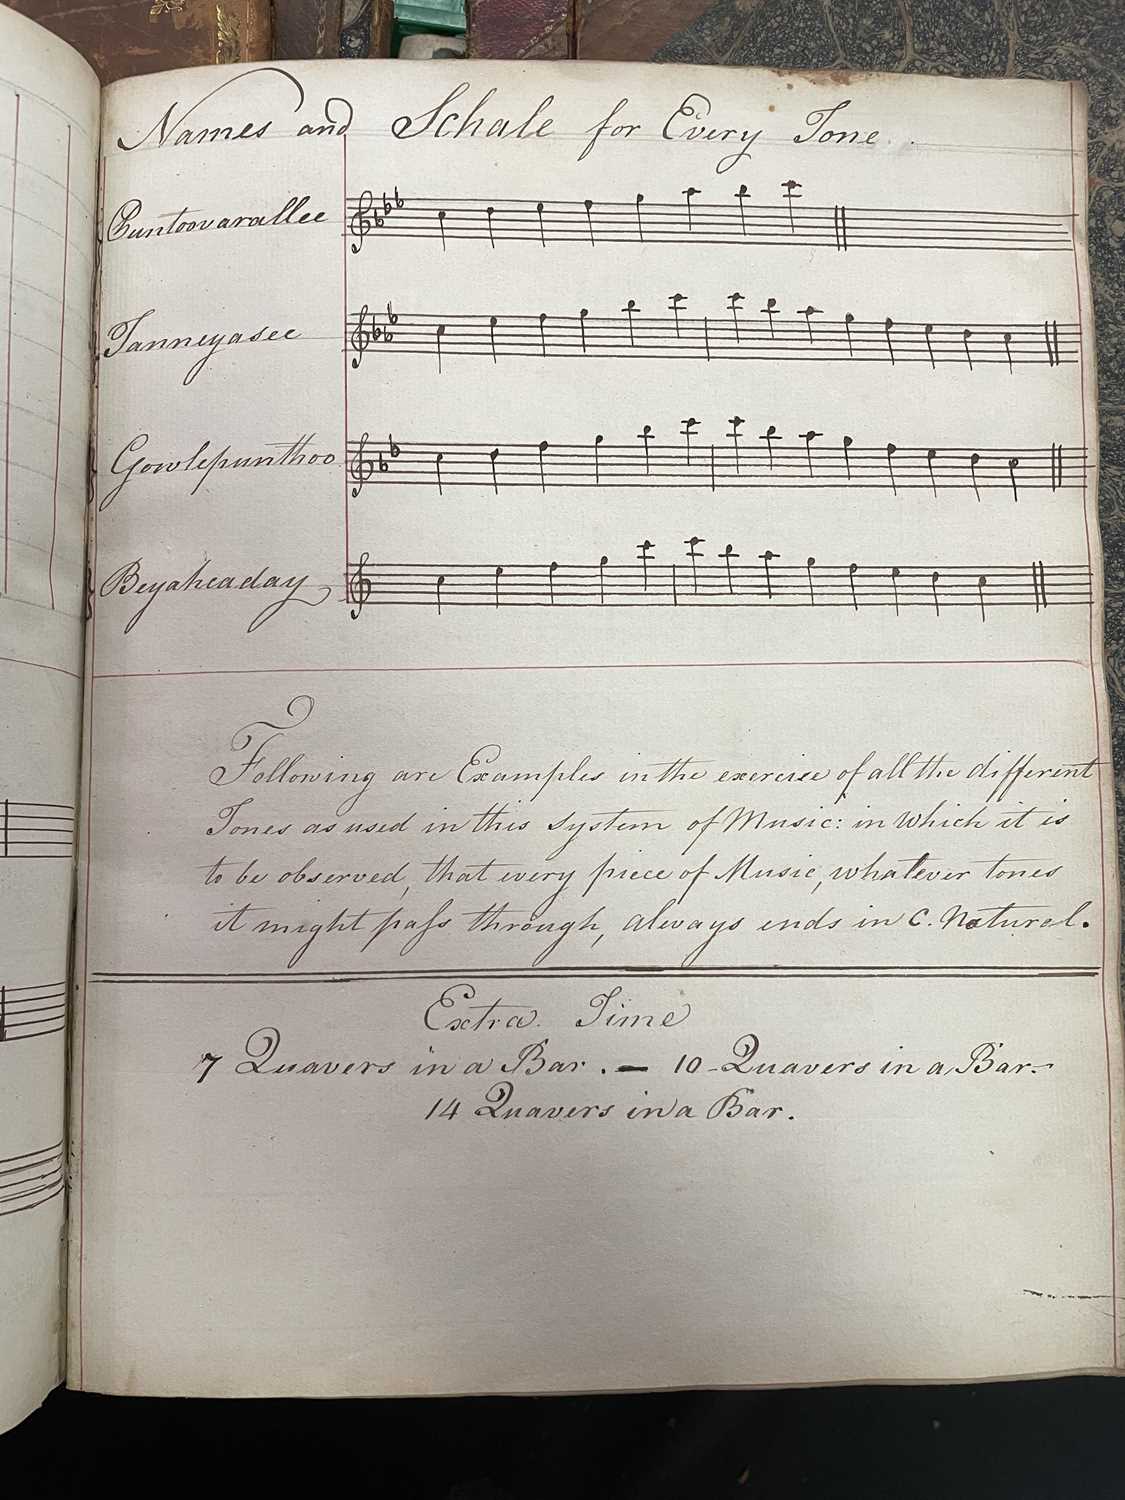 Names and Schale for Every Tone.
Puntoovarallee
Tanneyasee
Gowlepunthoo
Beyaheaday
Following are Examples in the exercise of all the different
Tones as used in this system of Music: in which it is
to be observed, that every piece of Music, whatever tones
it might paſs through, always ends in C. Natural.
Extra Time
7 Quavers in a Bar. — 10 - Quavers in a Bar -
14 Quavers in a Bar.